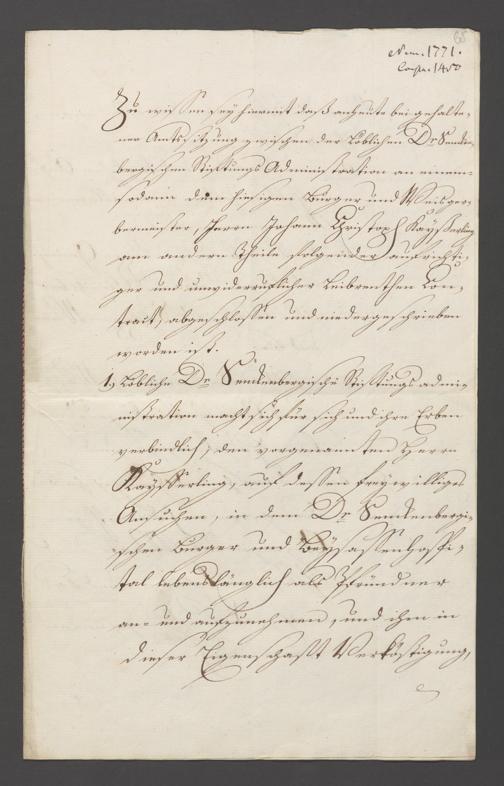 68
Num. 1771.
Zu wissen sey hiermit daß anheute bei gehalte-
ner Amtssitzung zwischen der Löblichen Dr Senken-
bergischen Stiftungs Administration an einem-
sodann dem hiesigen Bürger und Weisger-
bermeister, Herrn Johann Christoph Kayßerling
am andern Theile folgender aufrichti-
ger und unwiderruflicher Leibrenthen Con-
tract, abgeschlossen und niedergeschrieben
worden ist.
1, Löbliche Dr Senkenbergische Stiftungs admi-
nistration macht sich für sich und ihre Erben
verbindlich, den vorgenannten Herrn
Kaysserling, auf dessen freywilliges
Ansuchen, in dem Dr Senkenbergi-
schen Burger und Beysassenhospi-
tal lebenslänglich als Pfründner
an- und aufzunehmen, und ihm in
dieser Eigenschafft Verköstigung,